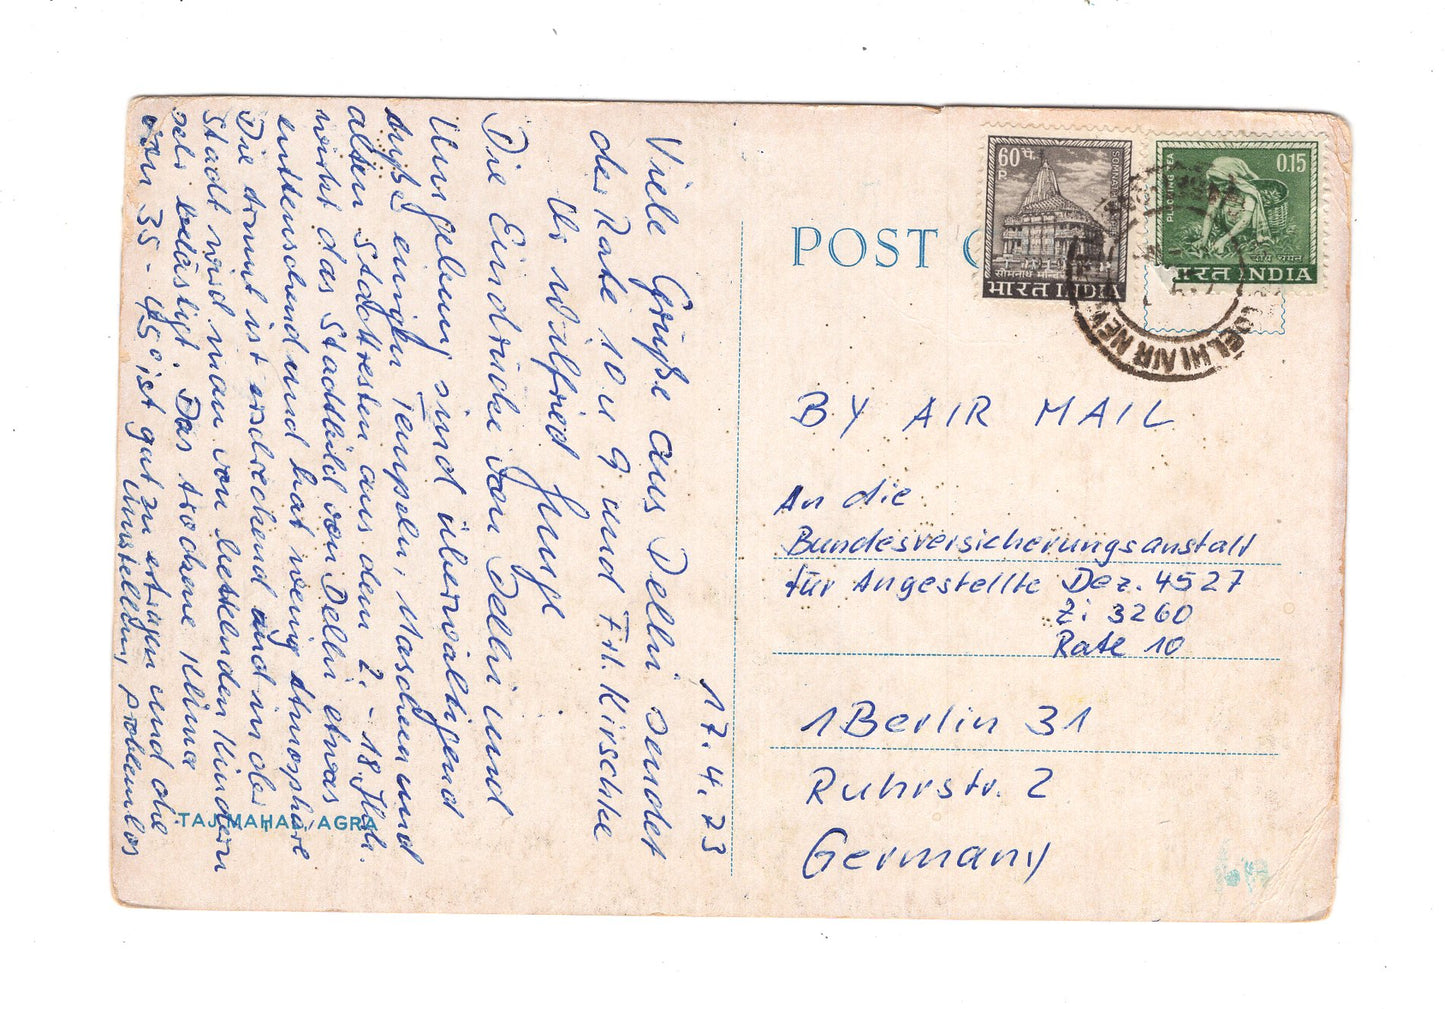 17.4.73
Viele Grüße aus Delhi sendet
der Rate 10 u 9 und Frl. Kirschke
Ihr Wilfried
Die Eindrücke von Delhi und
Umgebung sind überwältigend
außer einigen Tempeln, Moscheen und
alten Stadtresten aus dem 2. - 18. Jhh.
wirkt das Stadtbild von Delhi etwas
enttäuschend und hat wenig Atmosphäre
Die Armut ist erschreckend und in der
Stadt wird man von bettelnden Kindern
sehr belästigt. Das trockene Klima
von 35 - 45° ist gut zu ertragen und die
Umstellung problemlos
TAJ MAHAL, AGRA
POST C
60 प.
P
SOMNATH
सोमनाथ मन्दिर
भारत INDIA
0.15
PLUCKING TEA
चाय चयन
भारत INDIA
DELHI AIR
BY AIR MAIL
An die
Bundesversicherungsanstalt
für Angestellte Dez. 4527
Zi 3260
Rate 10
1 Berlin 31
Ruhrstr. 2
Germany